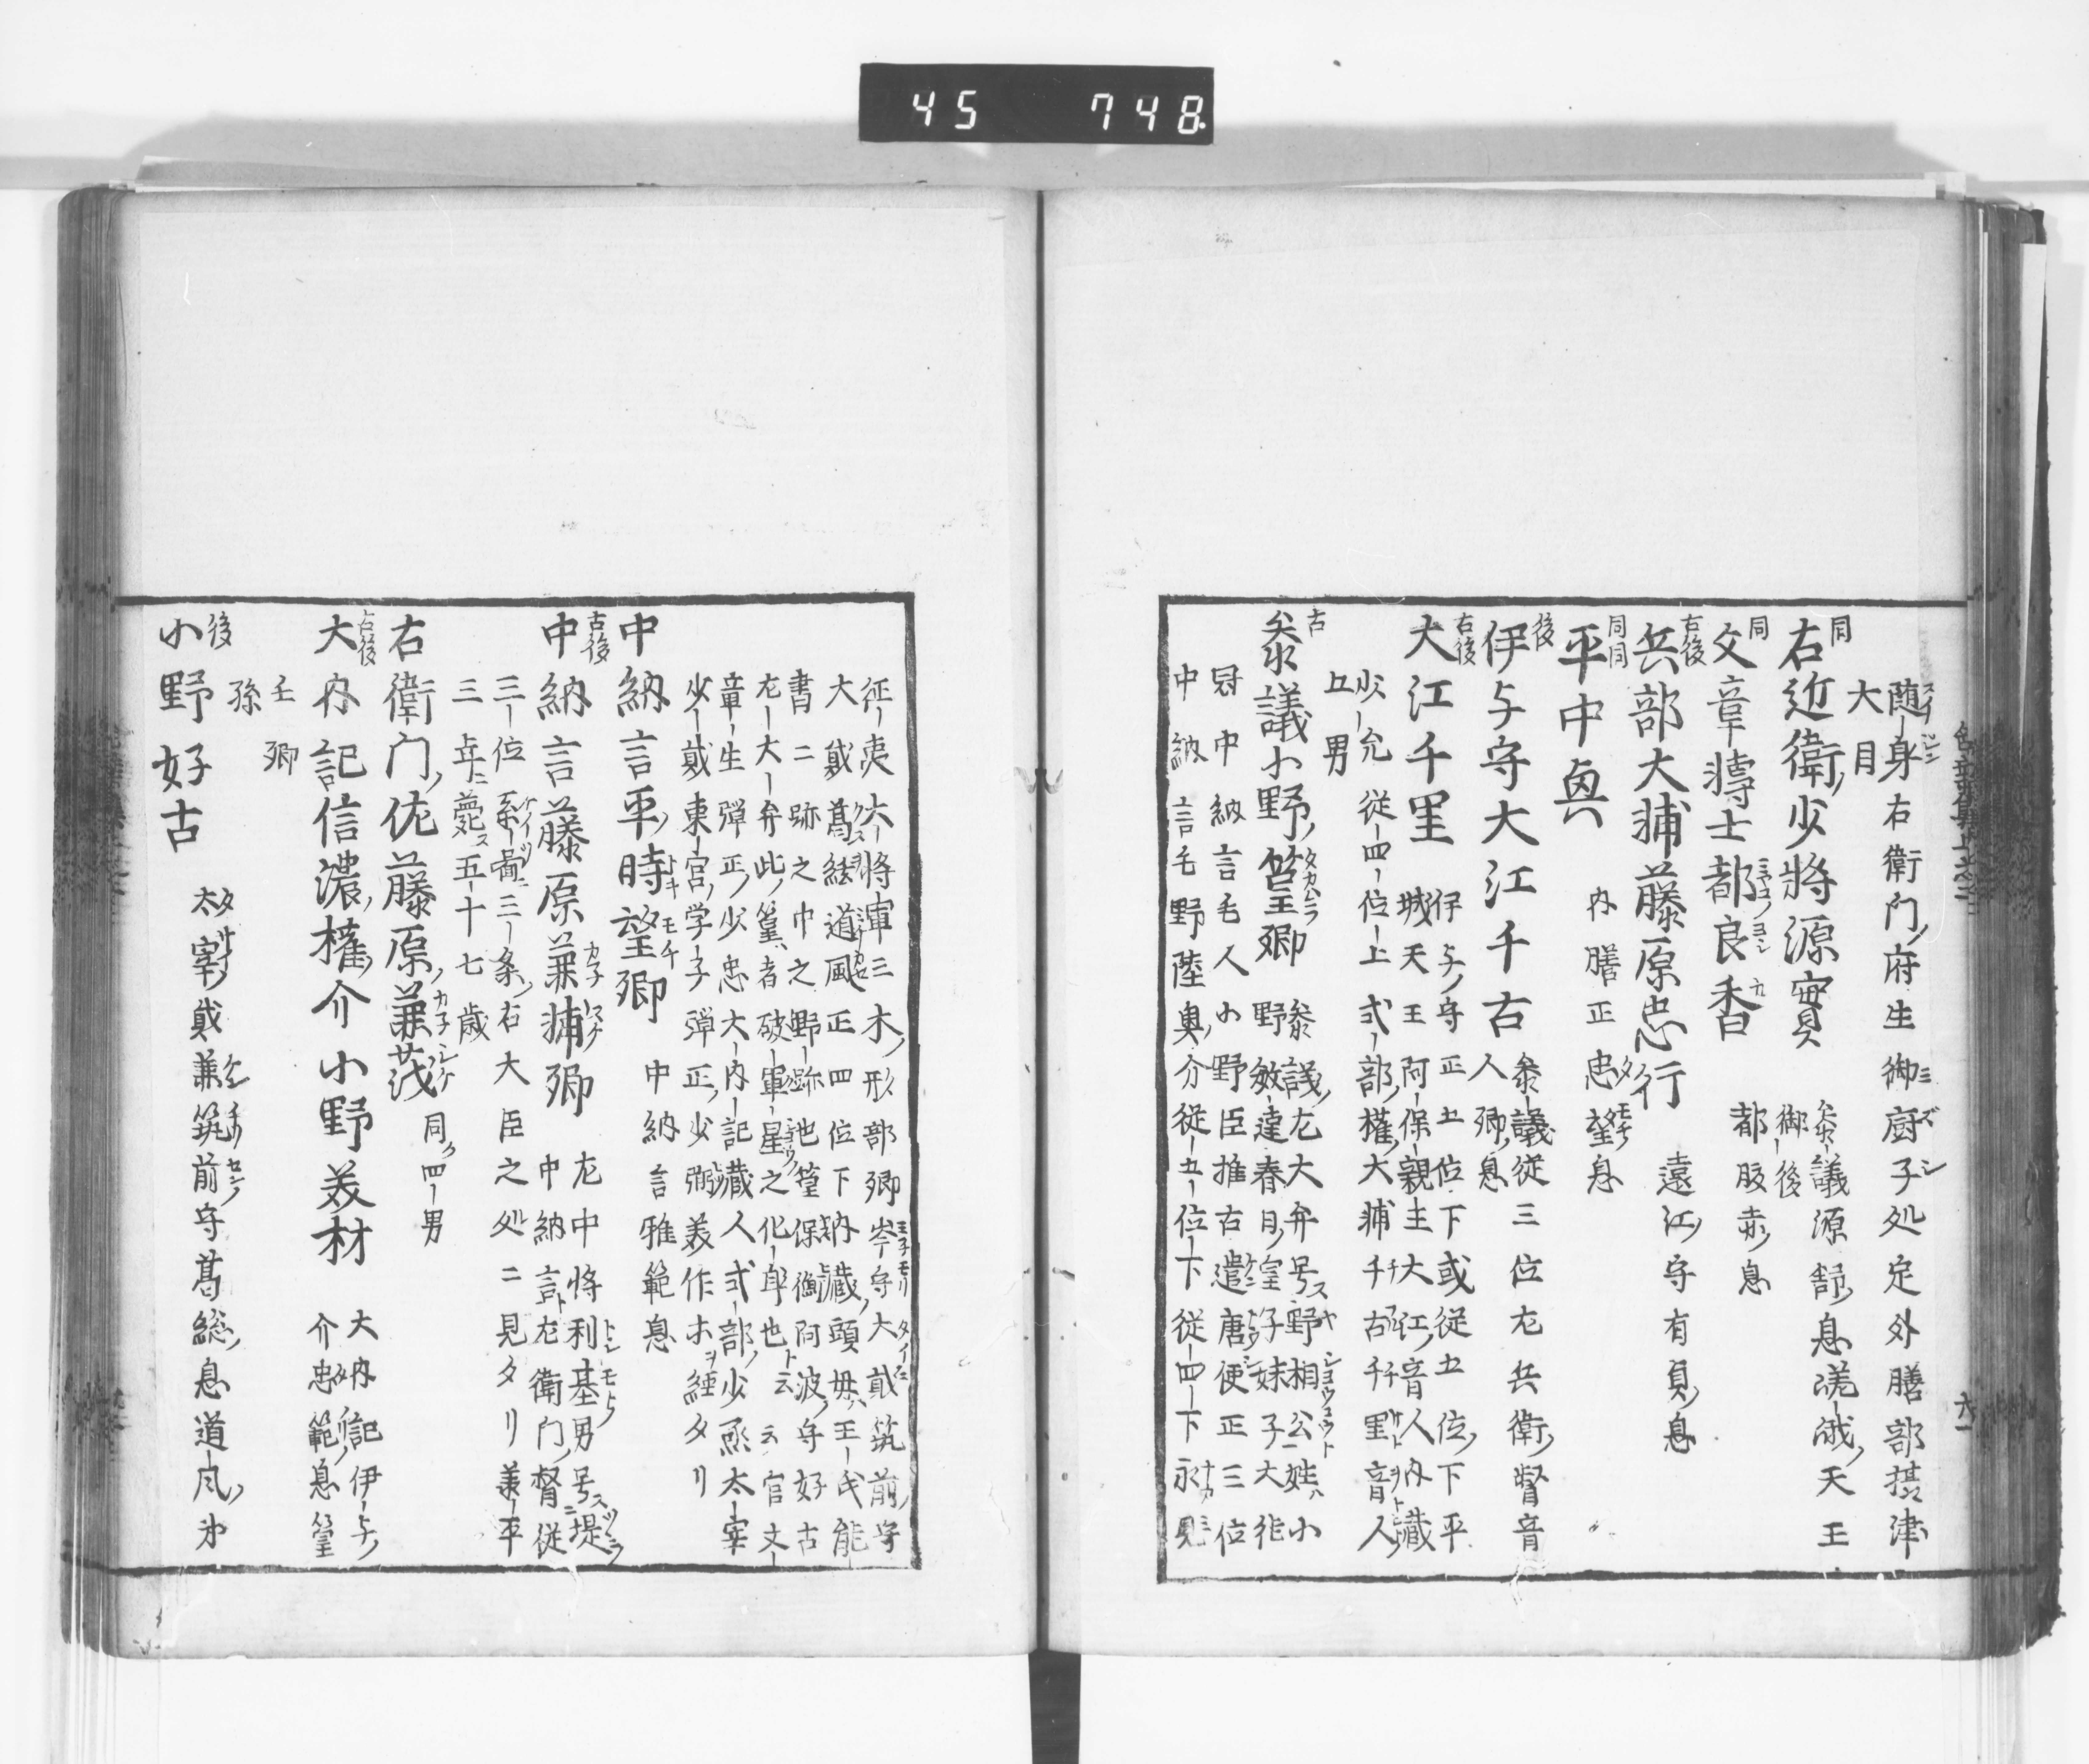 45 748
随身右衛門府生御厨子処定外膳部摂津
大目
同
右近衛少将源實
参議源舒息嵯峨天王
御後
同
文章博士都良香
都腹赤息
古後
兵部大輔藤原忠行
遠江守有貞息
同同
平中興
内膳正忠望息
後
伊与守大江千古
参議従三位左兵衛督音
人卿息
古後
大江千里
伊与守正五位下或従五位下平
城天王阿保親王大江音人内蔵
少允従四位上式部権大輔千古千里音人
五男
古
参議小野篁卿
参議左大弁号野相公姓小
野敏達春日皇子妹子大徳
冠中納言毛人小野臣推古遣唐使正三位
中納言毛野陸奥介従五位下従四下永見
征夷大将軍三木形部卿岑守大貮筑前守
大貮葛絃道風正四位下内蔵頭母王氏能
書二跡之中之野跡也篁保衡阿波守好古
左大弁此篁者破軍星之化身也ト云云官文
章生弾正少忠大内記蔵人式部少丞太宰
少貮東宮学子弾正少弼美作ホヲ経タリ
中納言平時望卿
中納言雅範息
古後
中納言藤原兼輔卿
左中将利基男号堤
中納言左衛門督従
三位系啚三条右大臣之処ニ見タリ兼平
三年ニ薨ス五十七歳
右衛門佐藤原兼茂
同四男
古後
大内記信濃権介小野美材
大内記伊与
介忠範息篁
壬卿
孫
後
小野好古
太宰貮兼筑前守葛絃息道風弟